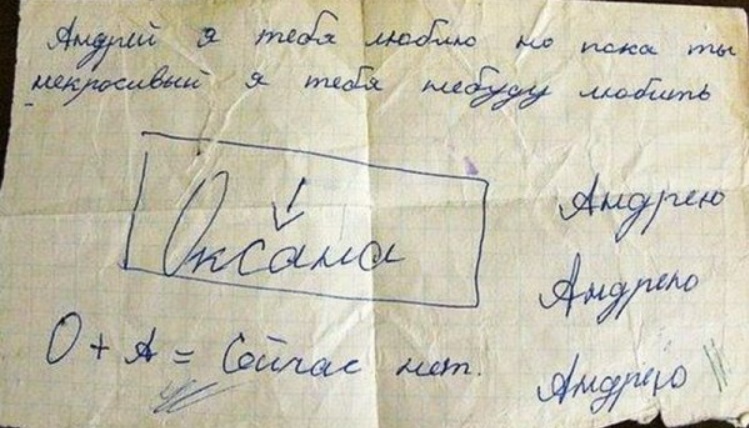 Андрей я тебя люблю но пока ты
некросивый я тебя небуду любить
Оксана
О + А = Сейчас нет.
Андрею
Андрею
Андрею